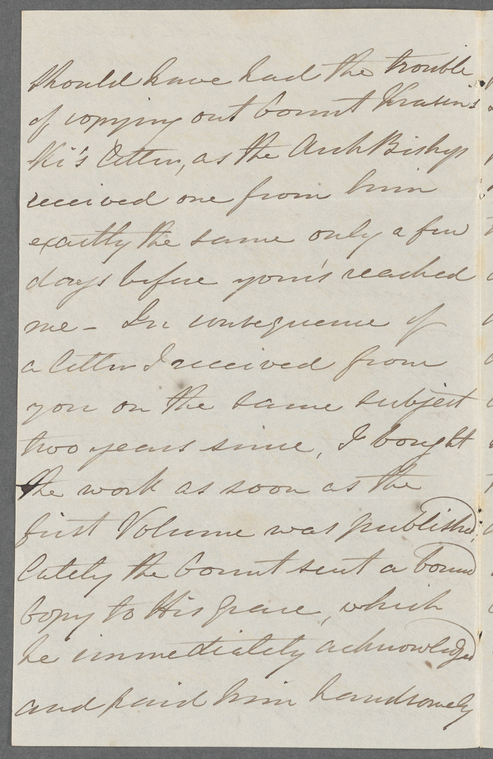 should have had the trouble
of copying out Count Krasins
ki's letter, as the ArchBishop
received one from him
exactly the same only a few
days before your's reached
me - In consequence of
a letter I received from
you on the same subject
two years since, I bought
the work as soon as the
first Volume was published.
Lately the Count sent a bound
Copy to His Grace, which
he immediately acknowledged
and paid him handsomely